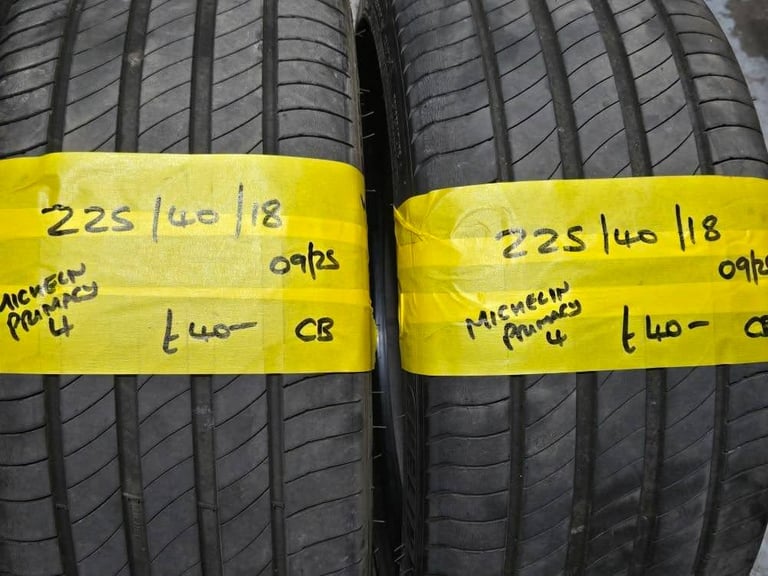 225/40/18
09/25
MICHELIN
PRIMACY
4
£40-
CB
225/40/18
09/25
MICHELIN
PRIMACY
4
£40-
CB